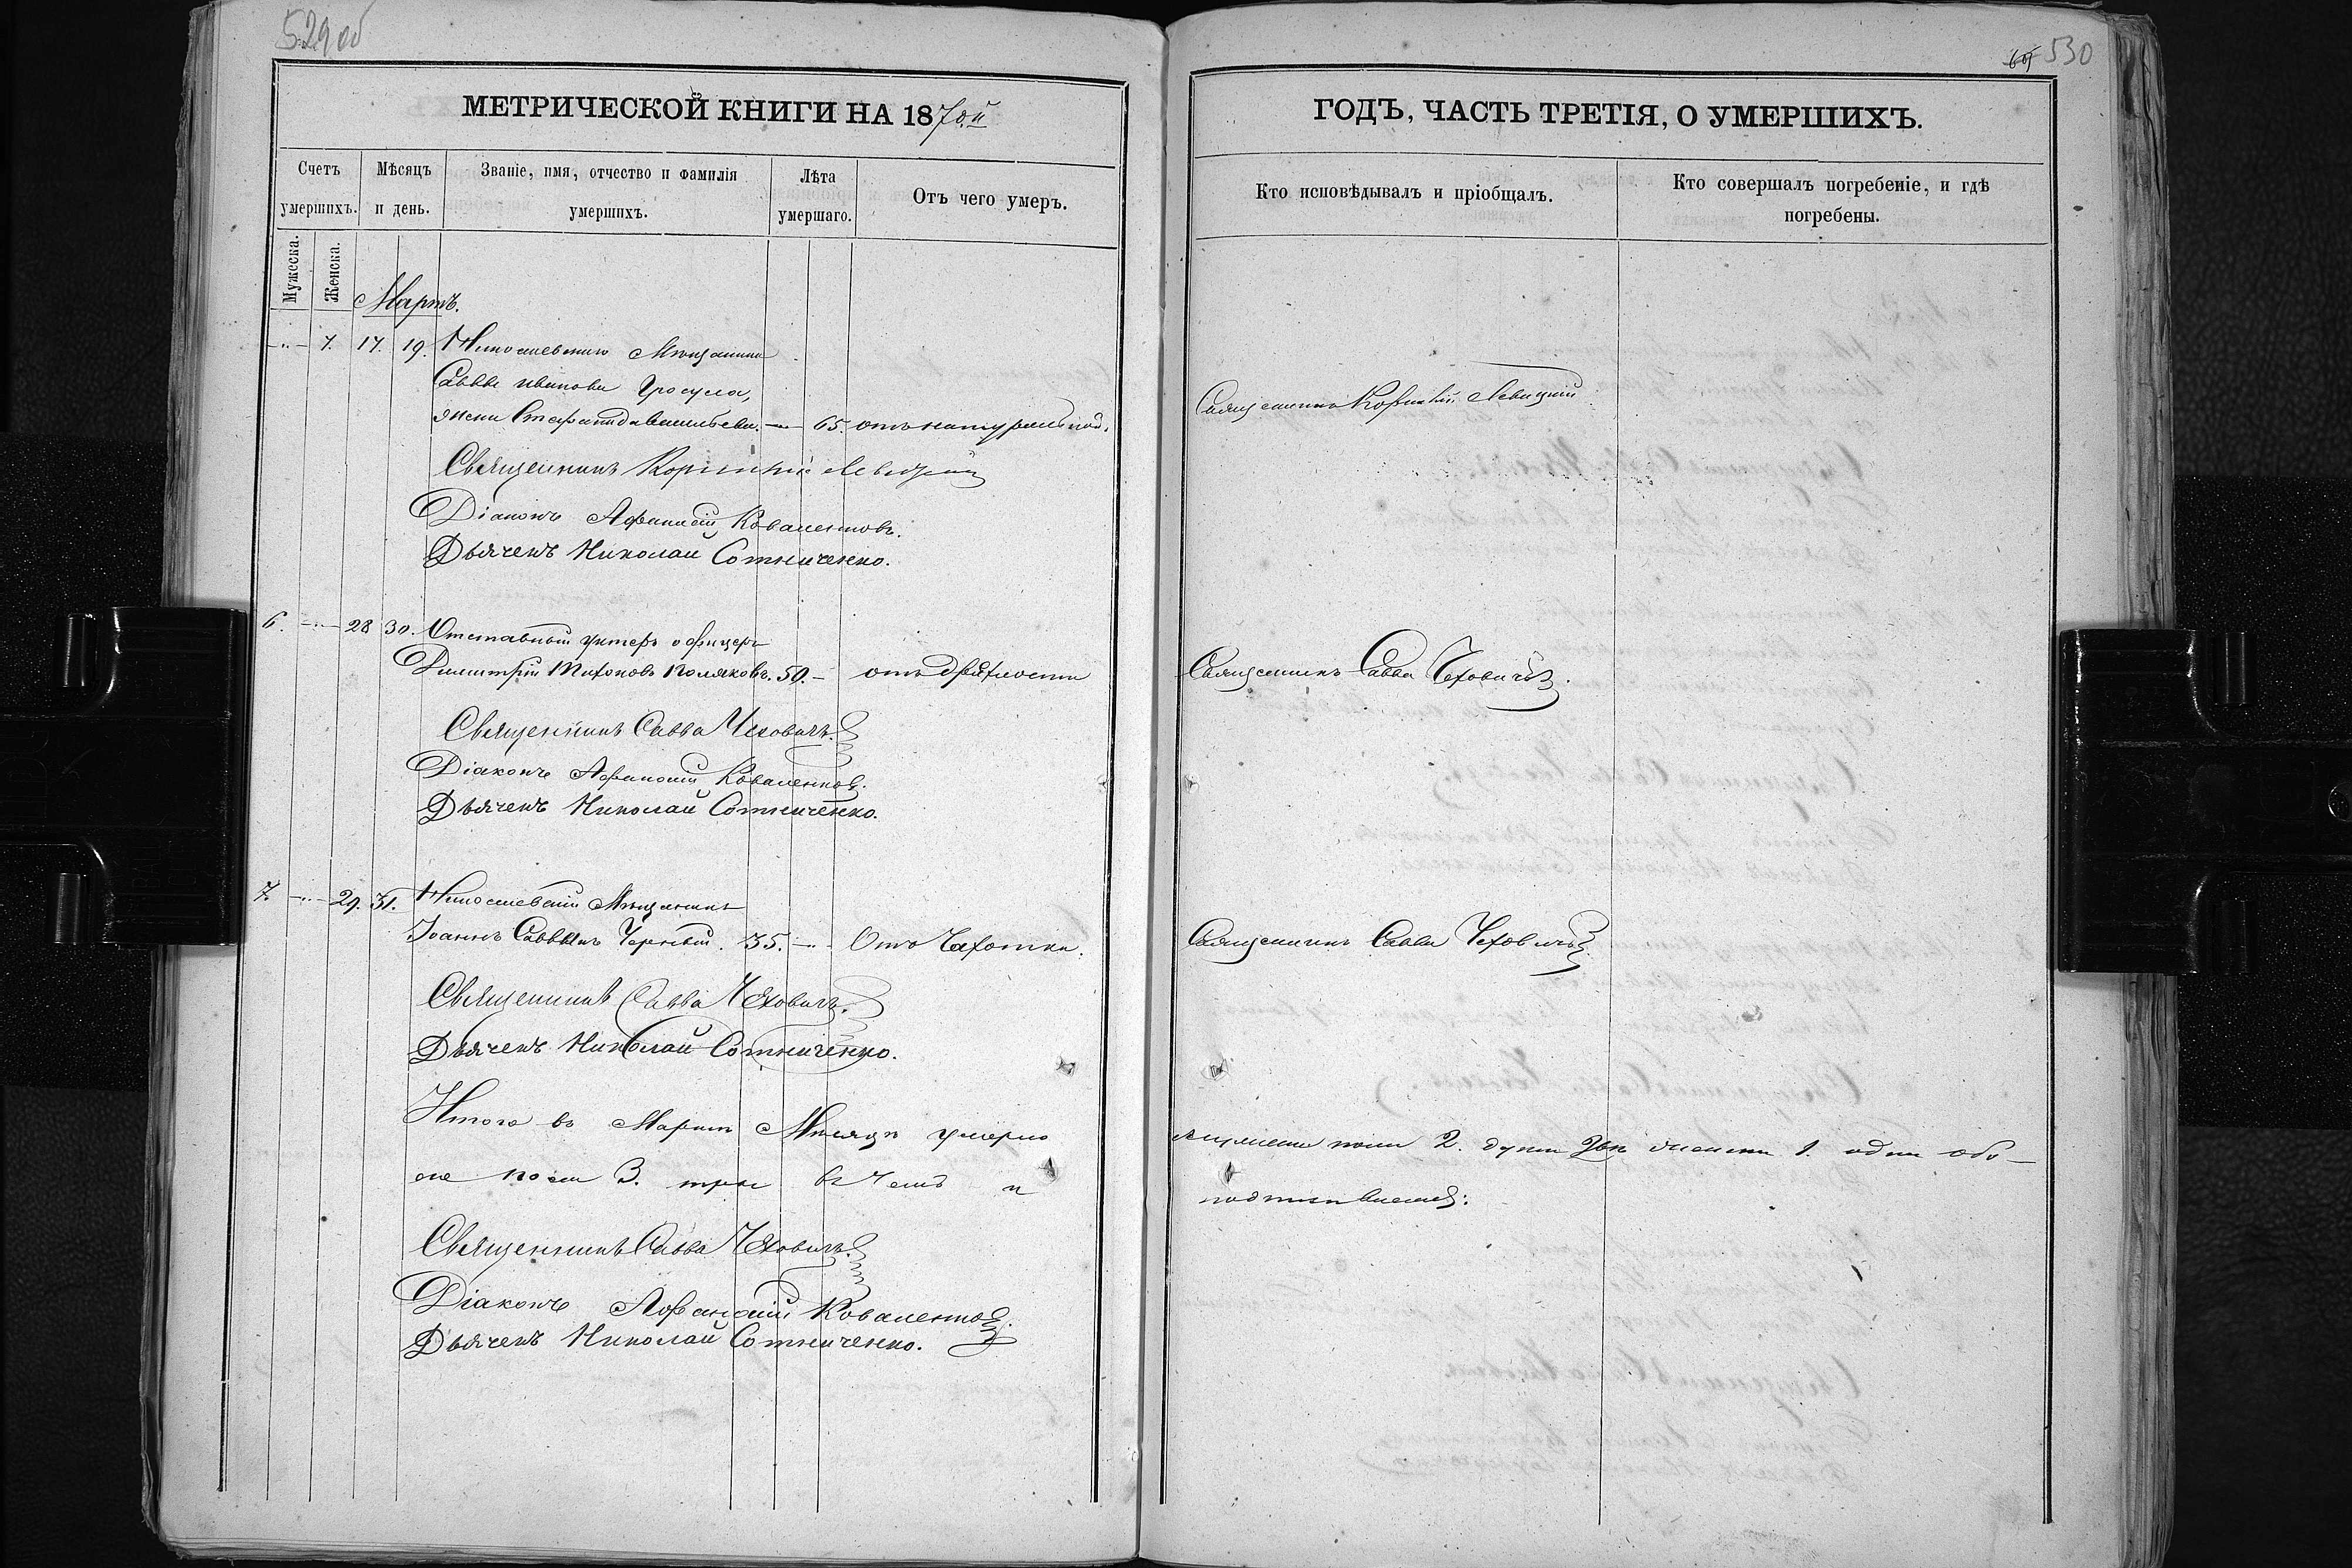 529 об
530
МЕТРИЧЕСКОЙ КНИГИ НА 1870й
ГОДЪ, ЧАСТЬ ТРЕТІЯ, О УМЕРШИХЪ.
Счетъ умершихъ.
Мужеска.
Женска.
Мѣсяцъ и день.
Званіе, имя, отчество и фамилія умершихъ.
Лѣта умершаго.
Отъ чего умеръ.
Кто исповѣдывалъ и пріобщалъ.
Кто совершалъ погребеніе, и гдѣ погребены.
Мартъ.
7. 17. 19. Мѣщанина
Саввы Иванова
жени Васильева. 65. отъ натуральной.
Священникъ Корнилій Левицкій
Священникъ Корнилій Левицкій
Діаконъ Афанасій Коваленковъ.
Дьячекъ Николай Сотниченко.
6. 28 30. Отставный унтеръ офицеръ
Димитрій Тихоновъ Поляковъ. 50. отъ дряхлости
Священникъ Савва Чеховичъ.
Священникъ Савва Чеховичъ.
Діаконъ Афанасій Коваленковъ.
Дьячекъ Николай Сотниченко.
7. 29. 31. Мѣщанинъ
Іоаннъ Саввинъ Черный. 35. Отъ Чахотки.
Священникъ Савва Чеховичъ
Священникъ Савва Чеховичъ.
Дьячекъ Николай Сотниченко.
Итого въ Мартѣ Мѣсяцѣ умерло мужеска пола 2. души двѣ женска 1. одна обо-
его пола 3. три въ чемъ и подписываемся:
Священникъ Савва Чеховичъ.
Діаконъ Афанасій Коваленковъ.
Дьячекъ Николай Сотниченко.